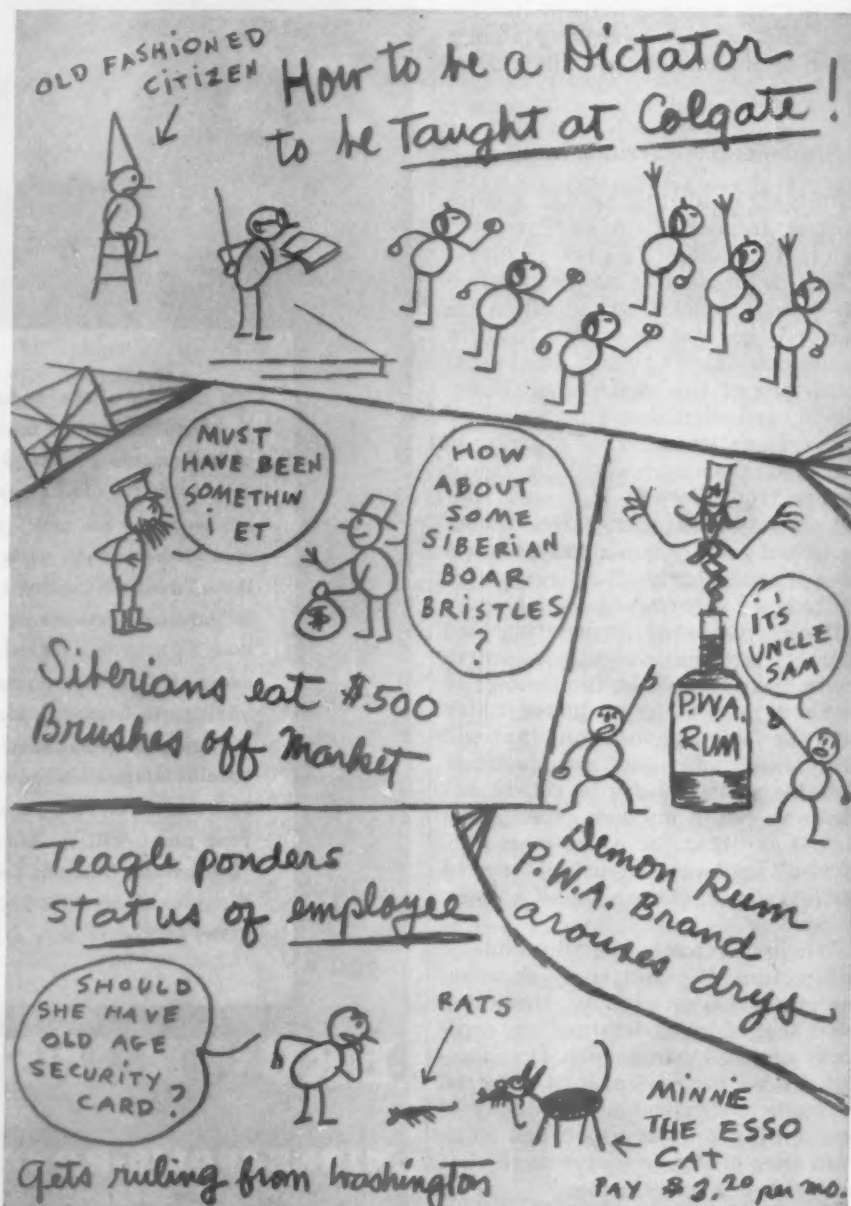 OLD FASHIONED
CITIZEN
How to be a Dictator
to be Taught at Colgate!
MUST
HAVE BEEN
SOMETHIN
i ET
HOW
ABOUT
SOME
SiBERiAN
BOAR
BRiSTLES
?
$
Siberians eat $500
Brushes off Market
iTS
UNCLE
SAM
P.W.A.
RUM
Demon Rum
P.W.A. Brand
arouses drys
Teagle ponders
status of employee
SHOULD
SHE HAVE
OLD AGE
SECURITY
CARD?
RATS
MiNNiE
THE ESSO
CAT
PAY $3.20 per mo.
gets ruling from Washington